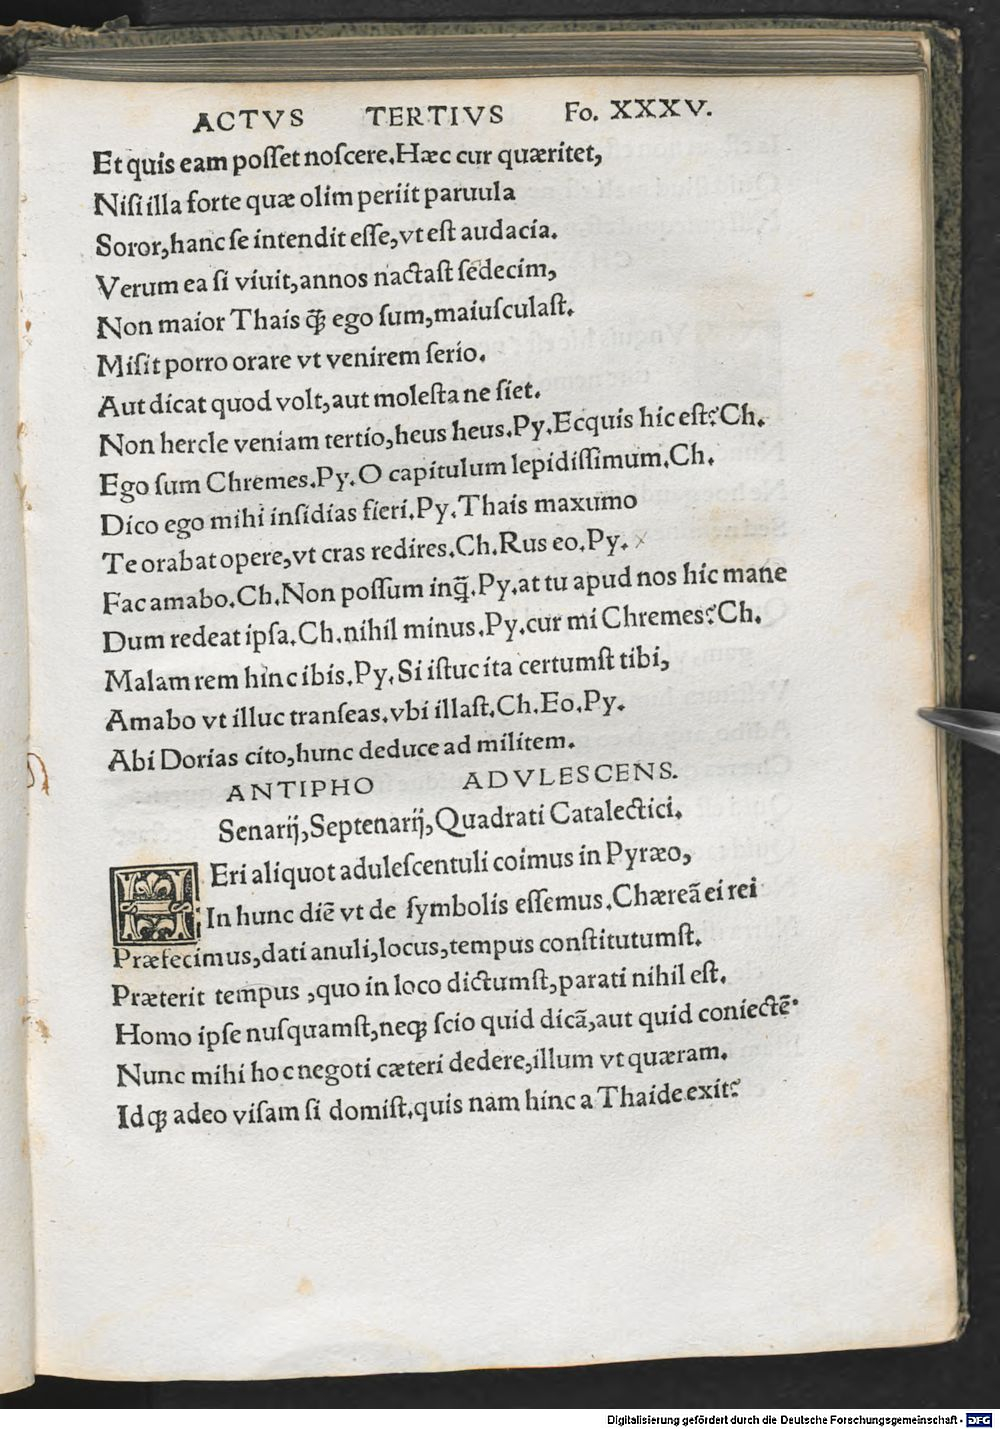 ACTVS TERTIVS Fo. XXXV.
Et quis eam poſſet noſcere. Hæc cur quæritet,
Niſi illa forte quæ olim periit paruula
Soror, hanc ſe intendit eſſe, vt eſt audacia.
Verum ea ſi viuit, annos nactaſt ſedecim,
Non maior Thais ꝗ̃ ego ſum, maiuſculaſt.
Miſit porro orare vt venirem ſerio.
Aut dicat quod volt, aut moleſta ne ſiet.
Non hercle veniam tertio, heus heus. Py. Ecquis hic eſt? Ch.
Ego ſum Chremes. Py. O capitulum lepidiſſimum. Ch.
Dico ego mihi inſidias fieri. Py. Thais maxumo
Te orabat opere, vt cras redires. Ch. Rus eo. Py.
Fac amabo. Ch. Non poſſum inꝗ̃. Py. at tu apud nos hic mane
Dum redeat ipſa. Ch. nihil minus. Py. cur mi Chremes? Ch.
Malam rem hinc ibis. Py. Si iſtuc ita certumſt tibi,
Amabo vt illuc tranſeas. vbi illaſt. Ch. Eo. Py.
Abi Dorias cito, hunc deduce ad militem.
ANTIPHO ADVLESCENS.
Senarij, Septenarij, Quadrati Catalectici.
HEri aliquot aduleſcentuli coimus in Pyræo,
In hunc diẽ vt de ſymbolis eſſemus. Chæreã ei rei
Præfecimus, dati anuli, locus, tempus conſtitutumſt.
Præterit tempus, quo in loco dictumſt, parati nihil eſt.
Homo ipſe nuſquamſt, neqꝫ ſcio quid dicã, aut quid coniectẽ.
Nunc mihi hoc negoti cæteri dedere, illum vt quæram.
Idqꝫ adeo viſam ſi domiſt. quis nam hinc a Thaide exit?
Digitalisierung gefördert durch die Deutsche Forschungsgemeinschaft - DFG